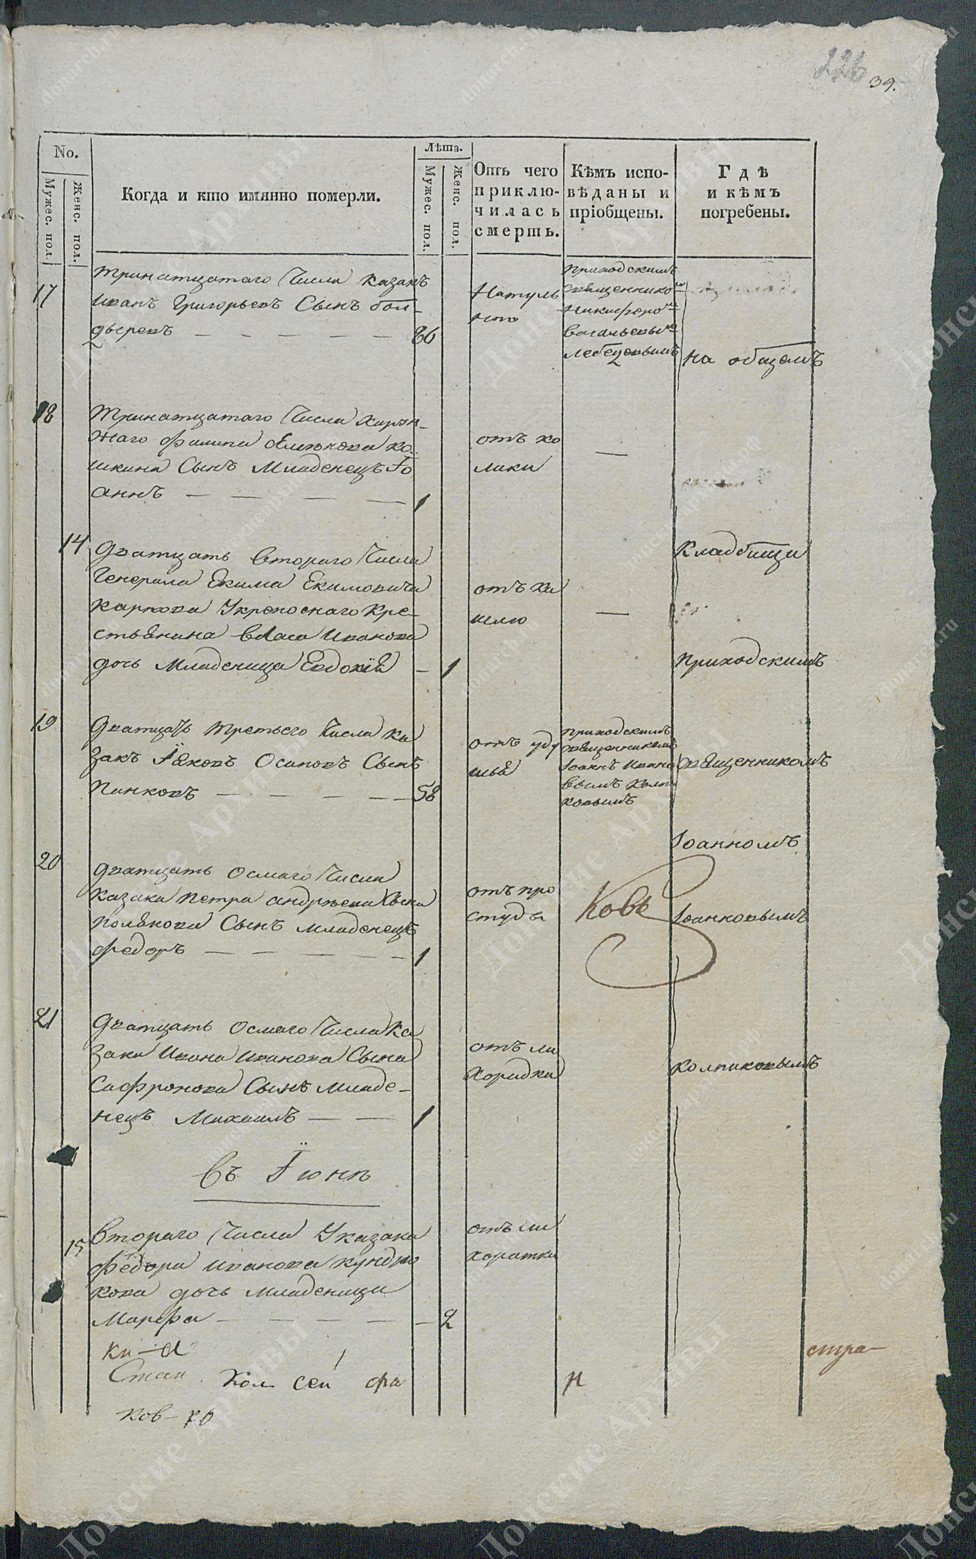 226
39.
No.
Мужес. пол.
Женс. пол.
Когда и кто имянно померли.
Лѣта.
Мужес. пол.
Женс. пол.
Отъ чего приклю-
чилась
смерть.
Кѣмъ испо-
вѣданы и
пріобщены.
Гдѣ
и кѣмъ
погребены.
17
тринатцатаго Числа казакъ
Иванъ Григорьевъ Сынъ бол-
дыревъ
86
Натуль
но
приходскимъ
священнико
Никифоро
Васильевы
Лебедевымъ
На общемъ
18
тринатцатаго Числа хорун-
жаго Филипа
шкина Сынъ Младенецъ Іо
аннъ
1
отъ ко
лики
Кладбищи
14
дватцать втораго Числа
Генерала Екима Екимовича
Карпова Укрепоснаго Кре-
стьянина Власа Иванова
дочь Младеница Евдокія
1
отъ ка
шлю
приходскимъ
19
дватцать третьего Числа ка
закъ Яковъ Осиповъ Сынъ
Пинковъ
58
отъ уду
шья
приходскимъ
священникомъ
Іоанъ Ивано
вымъ Колпи
ковымъ
священникомъ
Іоанномъ
20
дватцать осмаго Числа
казака Петра андреева Сына
Полякова Сынъ младенецъ
Федоръ
1
отъ про
студы
Ковъ
Іоанновымъ
21
дватцать осмаго Числа ка
зака Ивана Иванова Сына
Сафронова Сынъ Младе-
нецъ Михаилъ
1
отъ ли
хорадки
колпиковымъ
Въ Іюнѣ
15
втораго Числа Указака
Федора Иванова Кундрю
кова дочь младеница
Марфа
2
отъ ли
хоратки
ки-а
Стан
Кол сей фа
н
стра-
ков-ро
Донские Архивы
donarch.ru